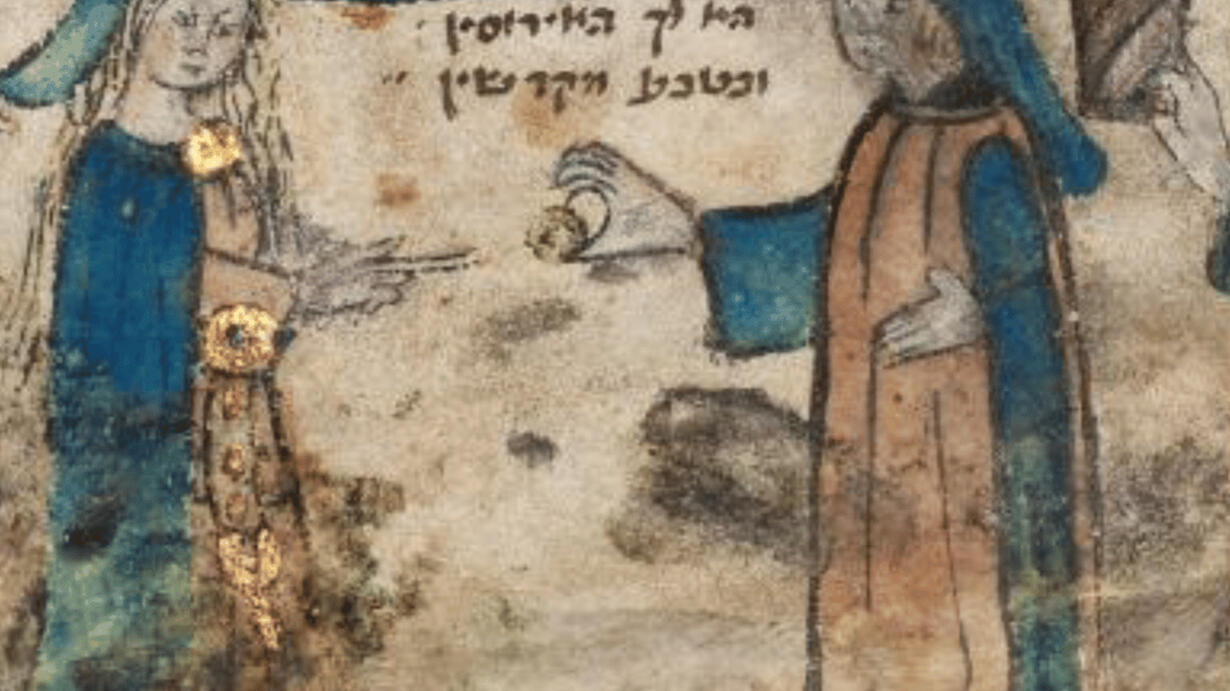 הא לך האירוסין ·
ובטבע מקדשין ··